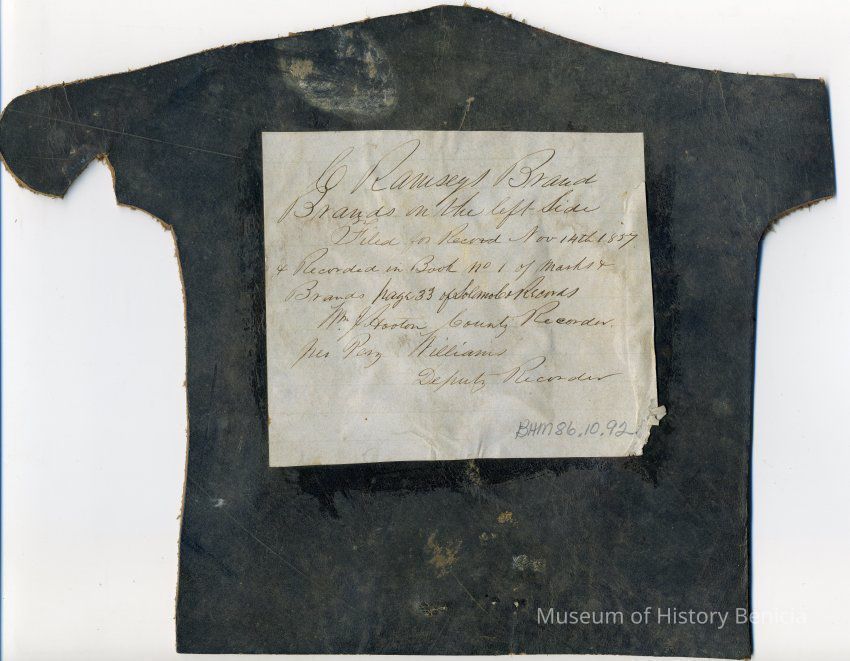 C Ramseys Brand
Brands on the left Side
Filed for Record Nov 14th 1857
& Recorded in Book no 1 of Marks &
Brands page 33 of Records
Wm Hooton County Recorder.
per Williams
Deputy Recorder
BHM86.10.92
Museum of History Benicia